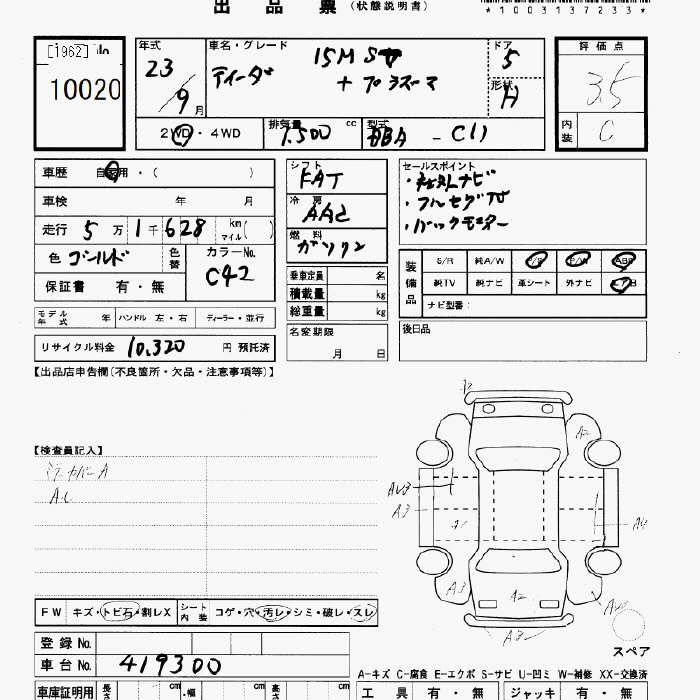 出品票（状態説明書）
*10031372233*
[1962]
10020
年式 23／9月
車名・グレード ティーダ 15M
＋プラズマ
ドア 5
形状 H
評価点 3.5
内装 C
2WD・4WD
排気量 1.500 cc
型式 DBA-C11
車歴 自家用・（ ）
車検 年 月
走行 5万1千628 km マイル（ ）
色 ゴールド 色替 カラーNo. C42
保証書 有・無
モデル年式 年 ハンドル 左・右 ディーラー・並行
リサイクル料金 10,320 円 預託済
シフト FAT
冷房 AAC
燃料 ガソリン
乗車定員 名
積載量 kg
総重量 kg
名変期限
月 日
セールスポイント
・社外ナビ
・フルセグTV
・バックモニター
装備品
S/R 純A/W P/S P/W ABS
純TV 純ナビ 革シート 外ナビ エアB
ナビ型番：
後日品
【出品店申告欄(不良箇所・欠品・注意事項等)】
【検査員記入】
ミラーカバーA
A2
A3
A3
A2
A3
FW キズ・トビ石・割レX シート内装 コゲ・穴・汚レ・シミ・破レ・スレ
登録No.
車台No. 419300
スペア
A-キズ C-腐食 E-エクボ S-サビ U-凹ミ W-補修 XX-交換済
車庫証明用 長さ cm ・幅 cm 高さ cm
工具 有・無 ジャッキ 有・無